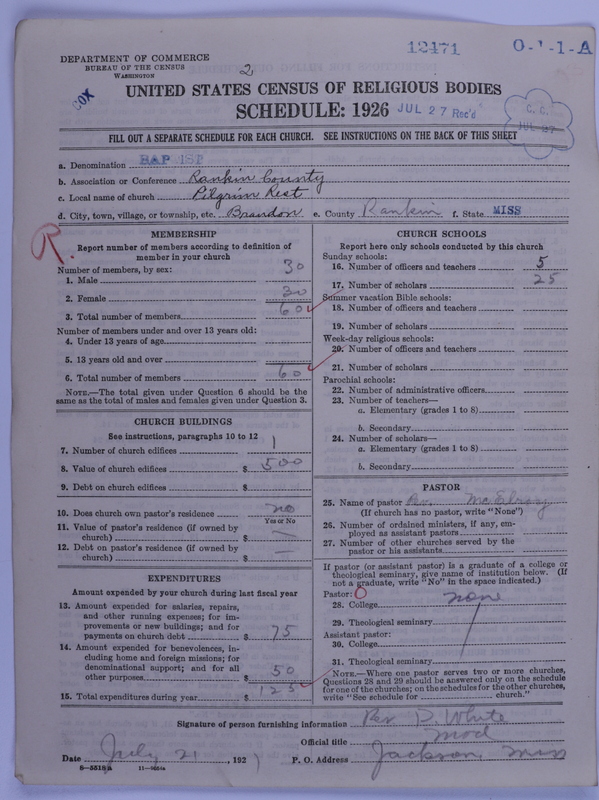 12471 O-1-1-A
DEPARTMENT OF COMMERCE
BUREAU OF THE CENSUS
WASHINGTON
2
COX
UNITED STATES CENSUS OF RELIGIOUS BODIES
SCHEDULE: 1926 JUL 27 Rec'd
C. C.
JUL 27
FILL OUT A SEPARATE SCHEDULE FOR EACH CHURCH. SEE INSTRUCTIONS ON THE BACK OF THIS SHEET
a. Denomination BAPTIST
b. Association or Conference Rankin County
c. Local name of church Pilgrim Rest
d. City, town, village, or township, etc. Brandon e. County Rankin f. State MISS
R.
MEMBERSHIP
Report number of members according to definition of
member in your church
Number of members, by sex:
1. Male 30
2. Female 30
3. Total number of members 60
Number of members under and over 13 years old:
4. Under 13 years of age
5. 13 years old and over
6. Total number of members 60
NOTE.—The total given under Question 6 should be the
same as the total of males and females given under Question 3.
CHURCH BUILDINGS
See instructions, paragraphs 10 to 12
7. Number of church edifices 1
8. Value of church edifices $ 500
9. Debt on church edifices $
10. Does church own pastor's residence no
Yes or No
11. Value of pastor's residence (if owned by
church) $ —
12. Debt on pastor's residence (if owned by
church) $ —
EXPENDITURES
Amount expended by your church during last fiscal year
13. Amount expended for salaries, repairs,
and other running expenses; for im-
provements or new buildings; and for
payments on church debt $ 75
14. Amount expended for benevolences, in-
cluding home and foreign missions; for
denominational support; and for all
other purposes $ 50
15. Total expenditures during year $ 125
CHURCH SCHOOLS
Report here only schools conducted by this church
Sunday schools:
16. Number of officers and teachers 5
17. Number of scholars 25
Summer vacation Bible schools:
18. Number of officers and teachers
19. Number of scholars
Week-day religious schools:
20. Number of officers and teachers
21. Number of scholars
Parochial schools:
22. Number of administrative officers
23. Number of teachers—
a. Elementary (grades 1 to 8)
b. Secondary
24. Number of scholars—
a. Elementary (grades 1 to 8)
b. Secondary
PASTOR
25. Name of pastor Rev. McElroy
(If church has no pastor, write "None")
26. Number of ordained ministers, if any, em-
ployed as assistant pastors
27. Number of other churches served by the
pastor or his assistants
If pastor (or assistant pastor) is a graduate of a college or
theological seminary, give name of institution below. (If
not a graduate, write "No" in the space indicated.)
Pastor: O
28. College none
29. Theological seminary
Assistant pastor:
30. College
31. Theological seminary
NOTE.—Where one pastor serves two or more churches,
Questions 28 and 29 should be answered only on the schedule
for one of the churches; on the schedules for the other churches,
write "See schedule for church."
Signature of person furnishing information Rev D. White
Official title Mod
Date July 21, 192 P. O. Address Jackson, Miss
8-5518A 11-9664a